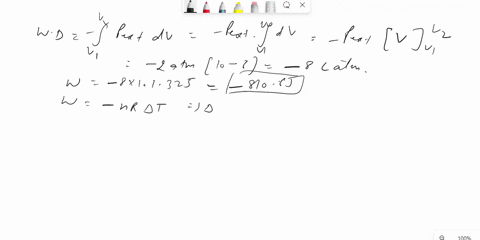 W.D = -∫_{V1}^{V2} Pext dV = -Pext. ∫_{V1}^{V2} dV = -Pext [V]_{V1}^{V2}
= -2 atm [10-
] = -8 L atm.
W = -8 × 101.325 = -810.6J
W = -nRΔT ⇒ Δ
100%